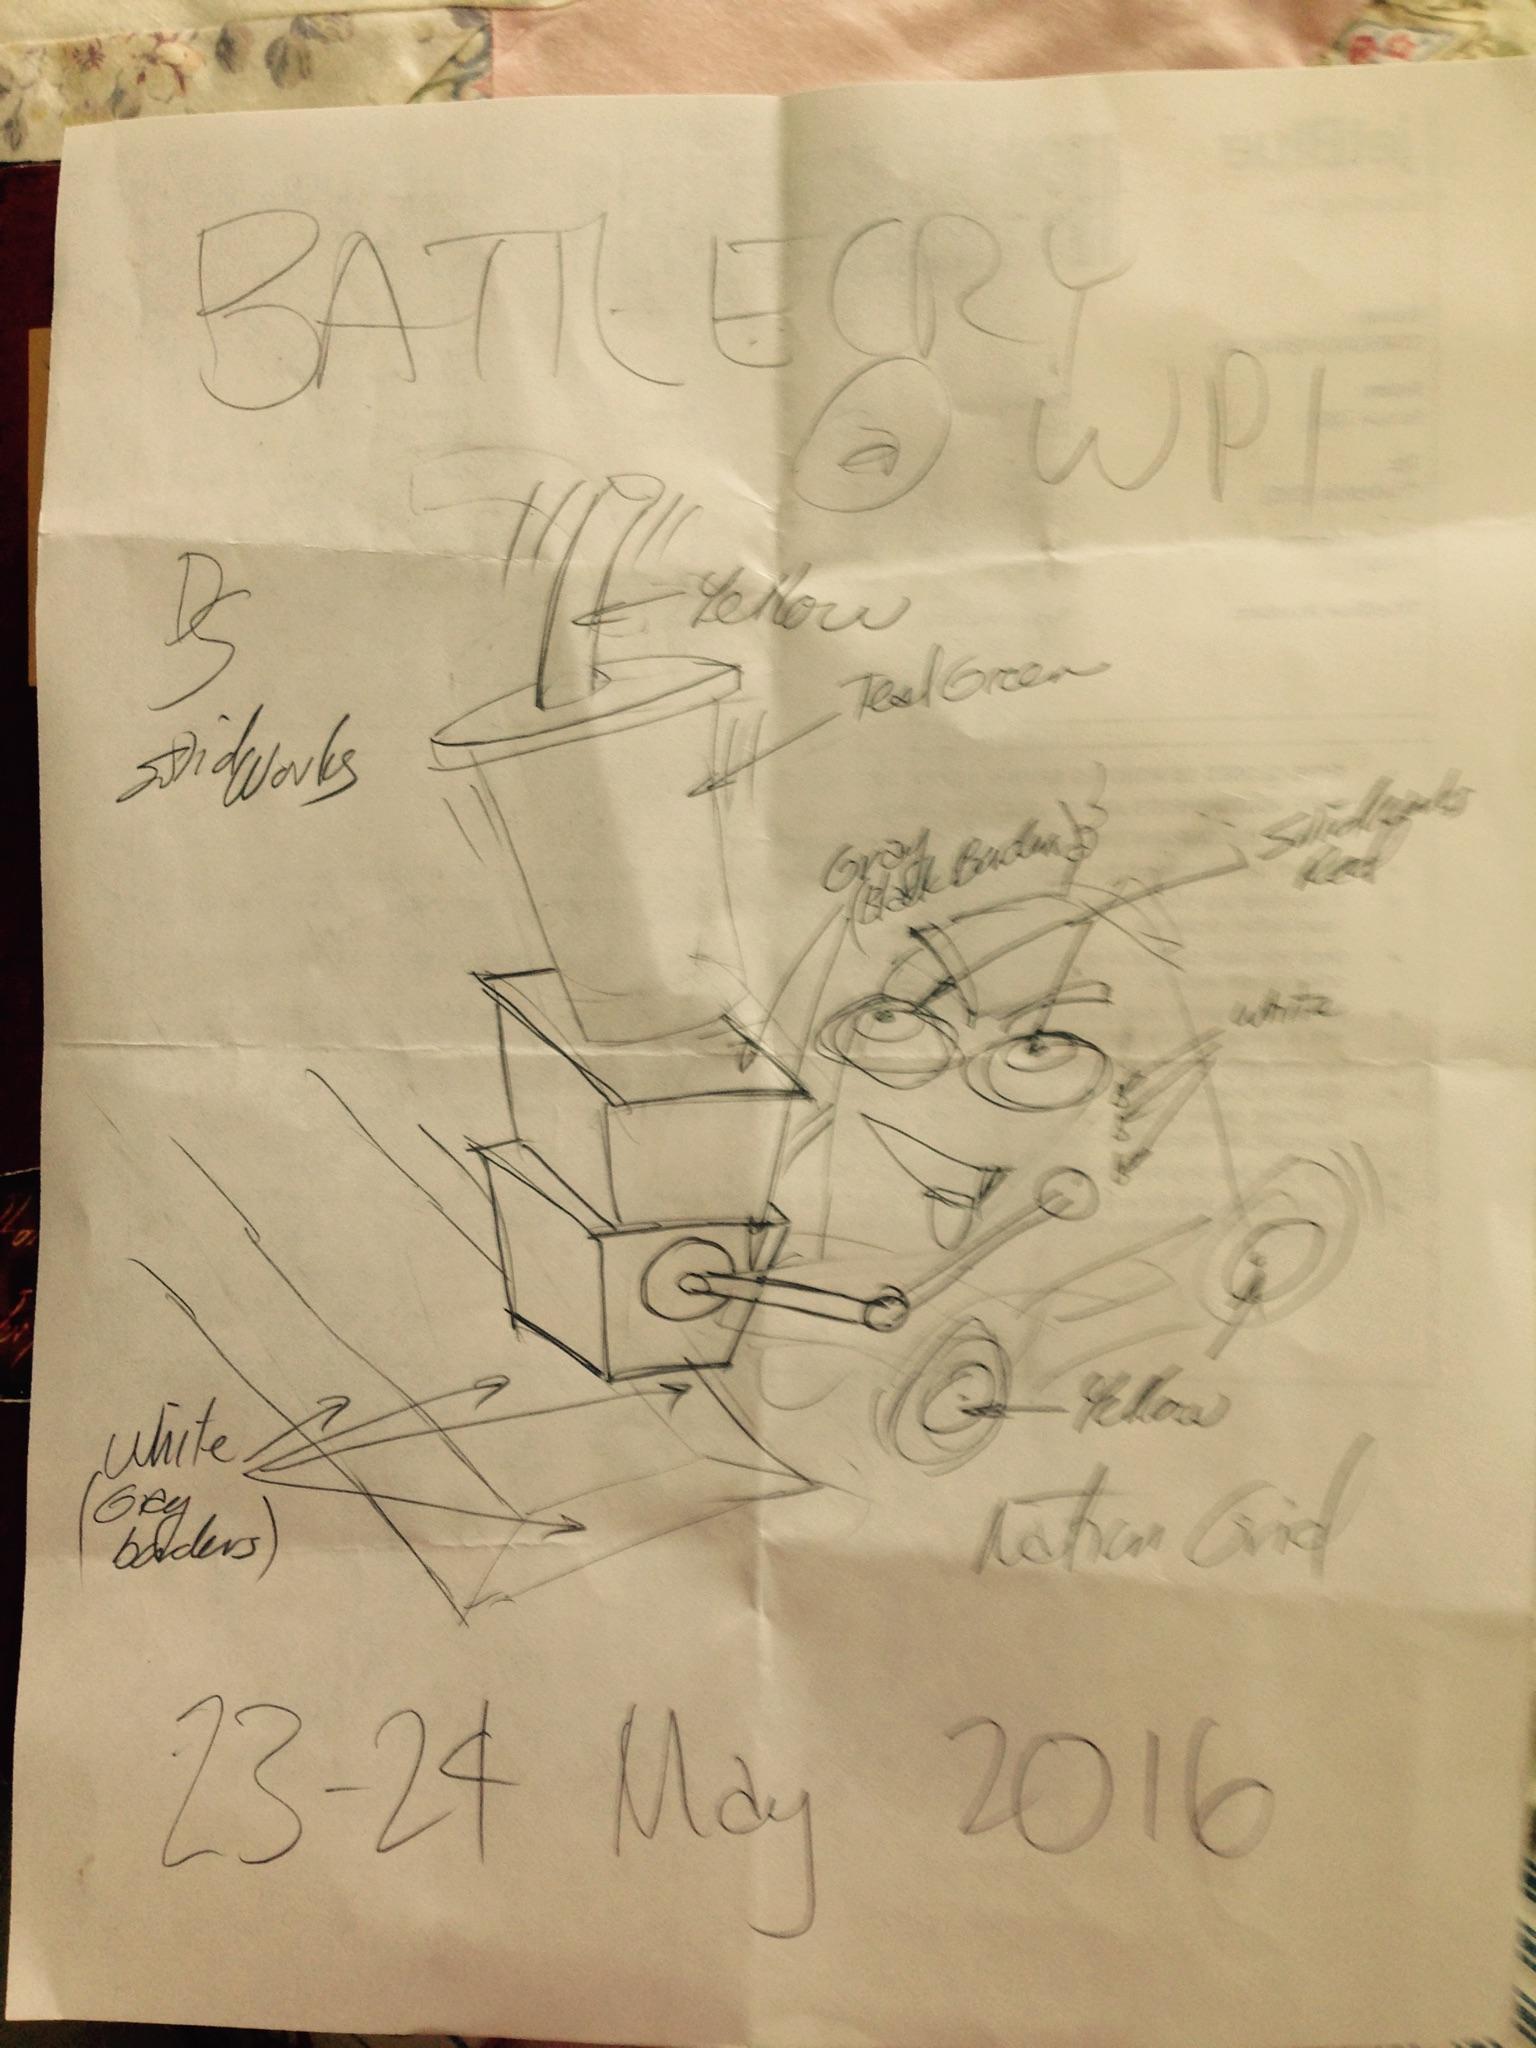 BATTLECRY
@ WPI
DS
SolidWorks
Yellow
Teal Green
Gray
(Black Borders)
SolidWorks
Red
White
White
(Gray
borders)
Yellow
Nation Grid
23-24 May 2016